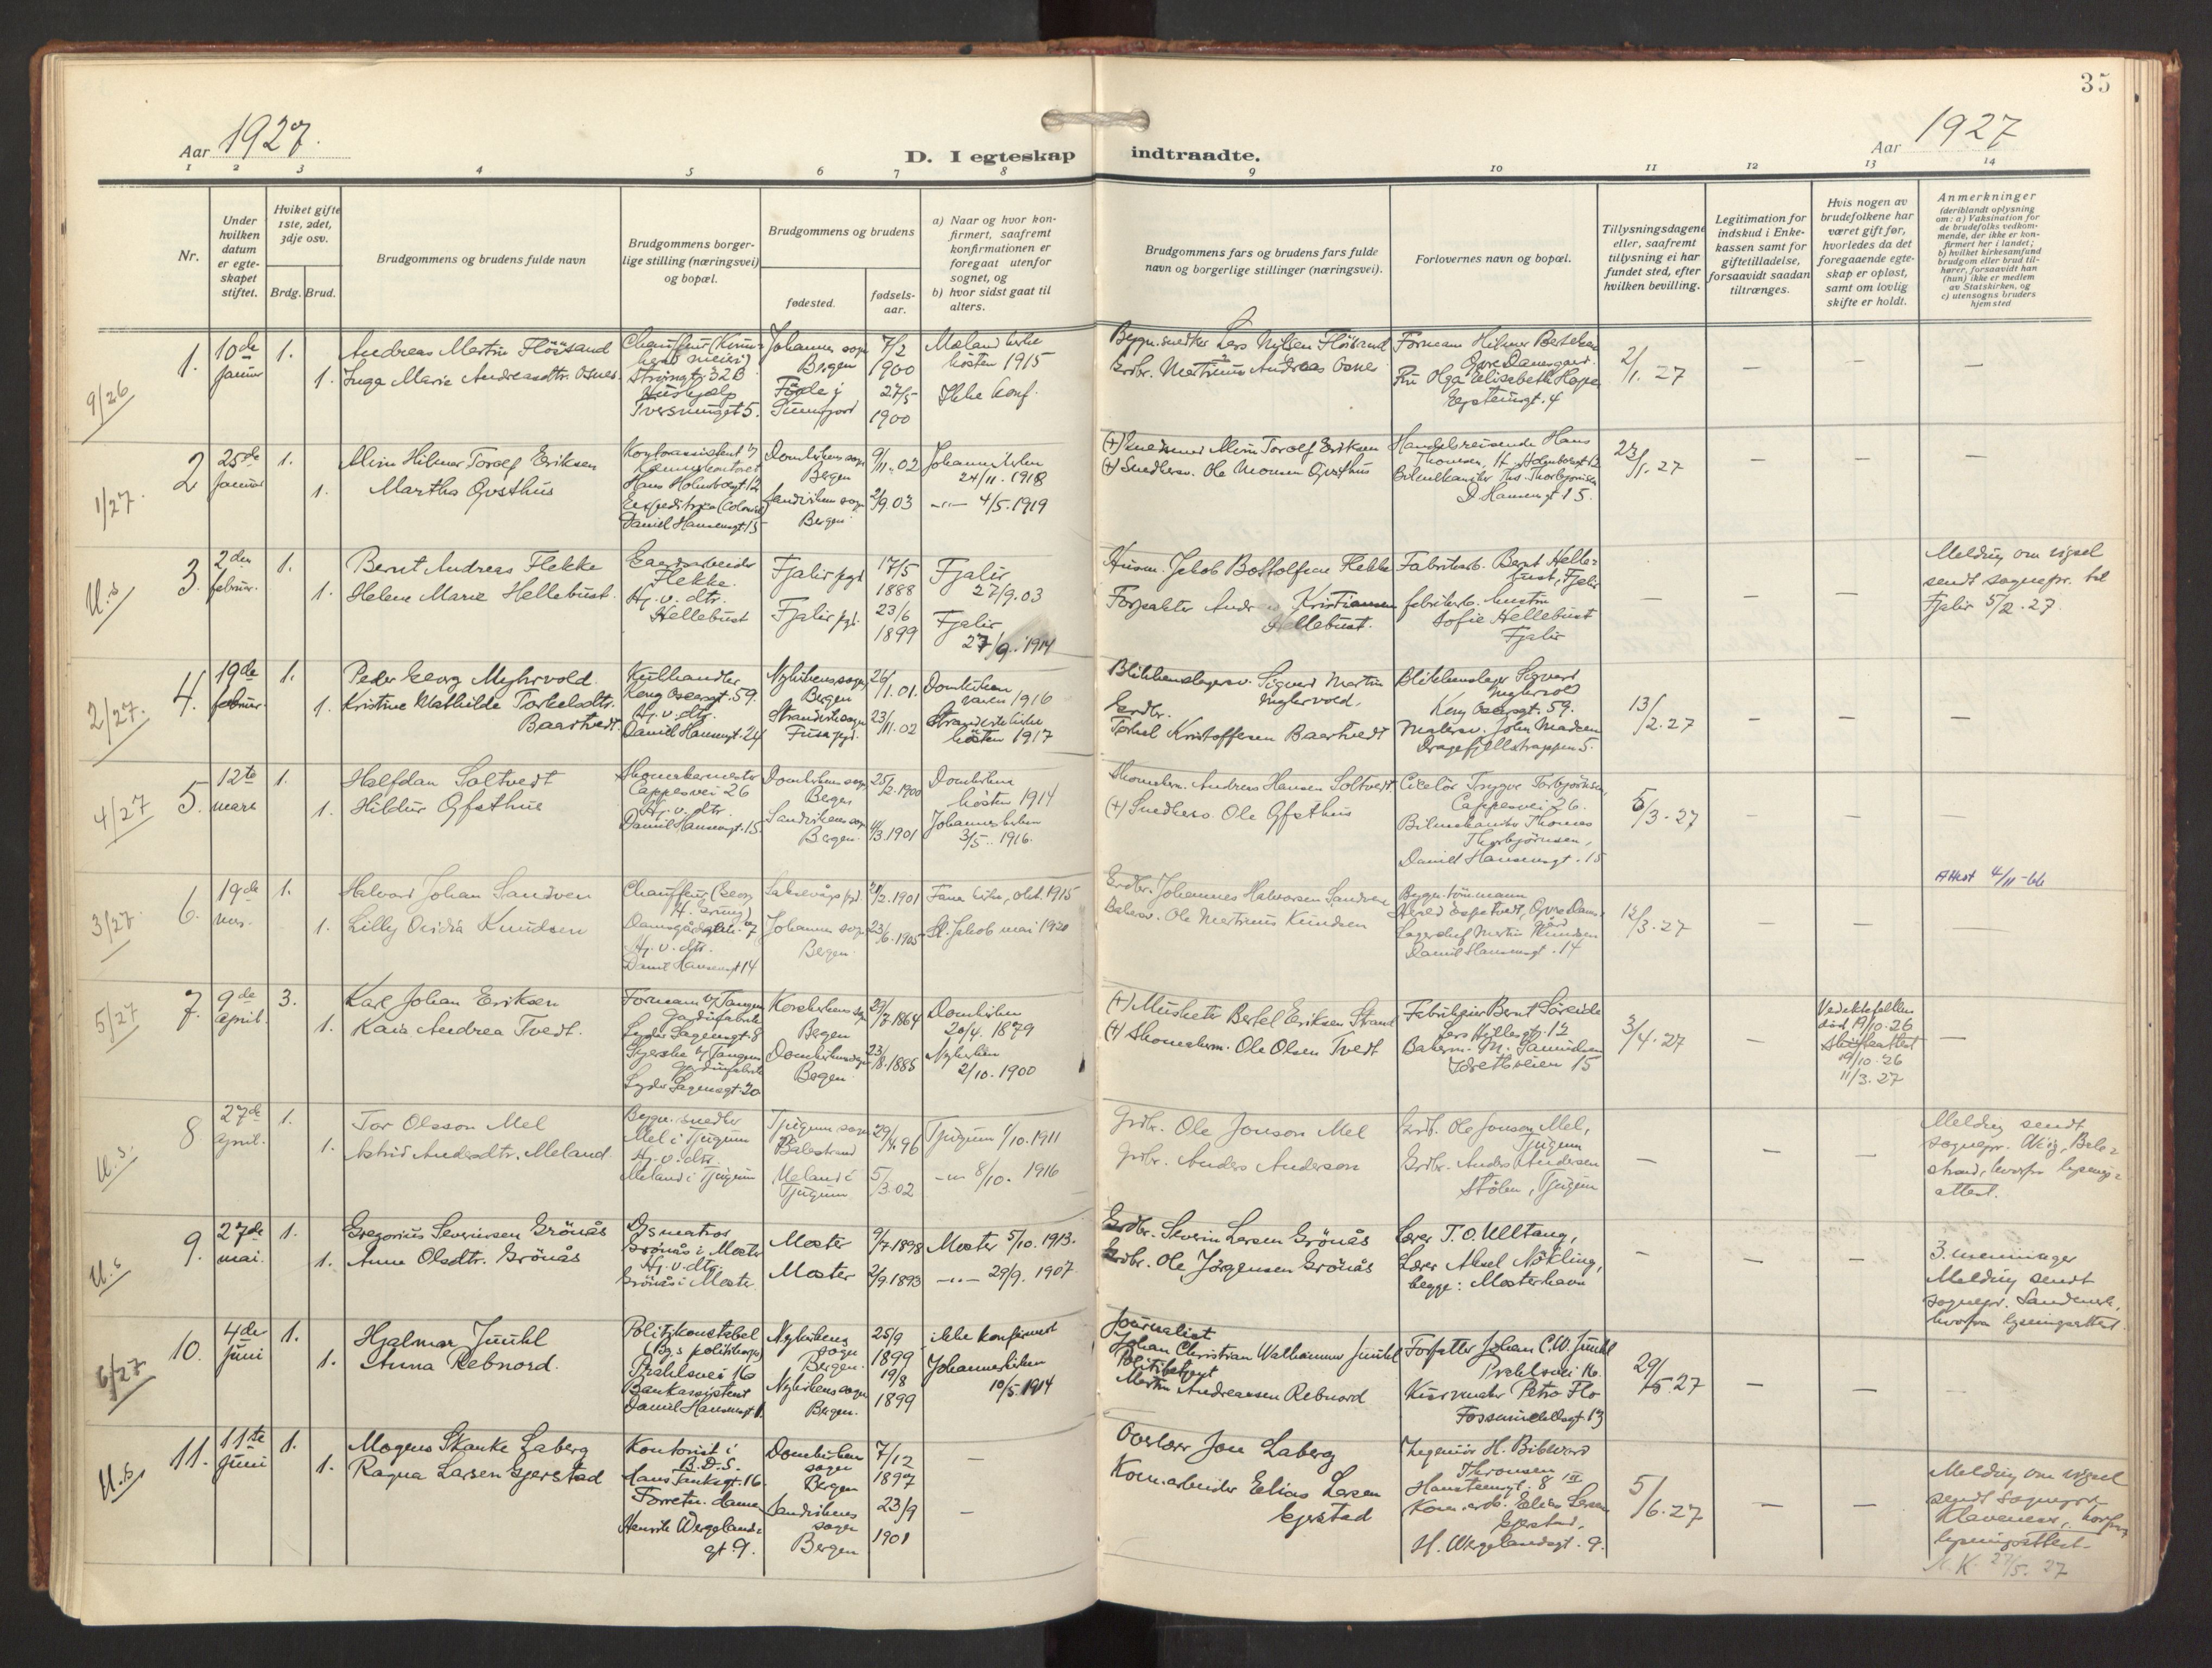 35
Aar 1927.
D. I egteskap indtraadte.
Aar 1927
1 2 3 4 5 6 7 8 9 10 11 12 13 14
Nr.
Under hvilken datum er egteskapet stiftet.
Hvilket gifte 1ste, 2det, 3dje osv.
Brdg. Brud.
Brudgommens og brudens fulde navn
Brudgommens borgerlige stilling (næringsvei) og bopæl.
Brudgommens og brudens
fødested.
fødselsaar.
a) Naar og hvor konfirmert, saafremt konfirmationen er foregaat utenfor sognet, og
b) hvor sidst gaat til alters.
Brudgommens fars og brudens fars fulde navn og borgerlige stillinger (næringsvei).
Forlovernes navn og bopæl.
Tillysningsdagene eller, saafremt tillysning ei har fundet sted, efter hvilken bevilling.
Legitimation for indskud i Enkekassen samt for giftetilladelse, forsaavidt saadan tiltrænges.
Hvis nogen av brudefolkene har været gift før, hvorledes da det foregaaende egteskap er opløst, samt om lovlig skifte er holdt.
Anmerkninger
(deriblandt oplysning om: a) Vaksination for de brudefolks vedkommende, der ikke er konfirmert her i landet; b) hvilket kirkesamfund brudgom eller brud tilhører, forsaavidt han (hun) ikke er medlem av Statskirken, og c) utensogns bruders hjemsted
9/26
1. 10de januar 1.
Andreas Martin Flöisand
1. Inga Marie Andreasdtr. Osnes
Strangt. 32 B
Hushjælp
Tversmuget 5.
Johannes sogn Bergen
Förde i Sunnfjord
7/2 1900
27/5 1900
hösten 1915
Ikke konf.
Bygn. snedker Lars Nilsen Flöisand
Grdbr. Martinus Andreas Osnes
Fru Olga Elisabeth
2/1. 27
1/27.
2 25de januar 1.
Alvin Hilmar Torolf Eriksen
1. Martha Qvsthus
Hans Holmboegt. 12
Daniel Hansensgt. 15
Domkirkens sogn Bergen
Sandvikens sogn Bergen
9/11. 02
2/9. 03
Johanneskirken 24/11. 1918
-"- 4/5. 1919
(+) Snedkersv. Ole Monsen Qvsthus
Handelsreisende Hans Thomsen, H. Holmboegt 12
D. Hansensgt 15.
23/1. 27
U.s
3. 2den februar. 1.
Bernt Andreas Flekke
1. Helene Marie Hellebust
Gaardsarbeider Flekke.
Hj. v. dtr. Hellebust
Fjaler pgd.
Fjaler pgd.
17/5 1888
23/6 1899
Fjaler 27/9. 03
Fjaler 27/9. 1914
Husm. Jakob Bottolfsen Flekke
Forpakter Andr Kristiansen Hellebust.
Fabrikarb. Bernt Hellebust, Fjaler
Sofie Hellebust Fjaler
Melding om vigsel sendt sognepr. til Fjaler 5/2. 27.
2/27.
4. 19de februar. 1.
Peder Georg Myhrvold
1. Kristine Mathilde Torkelsdtr. Baartvedt
Kulhandler
Kong Oscarsgt. 59.
Hj. v. dtr.
Daniel Hansensgt. 24
Nykirkens sogn Bergen
Strandvik sogn Fusa pgd.
26/1. 01.
23/11. 02
Domkirken vaaren 1916
Strandvik kirke hösten 1917
Blikkenslagersv. Sigvard Martin Myhrvold.
Grdbr. Torkel Kristoffersen Baartvedt
Blikkenslager Sigvard Myhrvold
Kong Oscarsgt. 59.
Malersv. John Madsen
Dragefjellstrappen 5.
13/2. 27
4/27
5. 12te mars 1.
Halfdan Soltvedt
1. Hildur Qfsthus
Skomakermester
Cappesvei 26
Hj. v. dtr.
Daniel Hansensgt. 15
Domkirkens sogn Bergen
Sandvikens sogn Bergen.
25/2. 1900
4/3. 1901
Domkirken hösten 1914
Johanneskirken 3/5. 1916.
Skomakerm. Andreas Hansen Soltvedt
(+) Snedkersv. Ole Qfsthus
Ciselör Trygve Torbjörnsen, Cappesvei 26.
Thomas Thorbjörnsen,
Daniel Hansensgt. 15
5/3. 27
3/27.
6. 19de mrs. 1.
Halvard Johan Sandven
1. Lilly Ovidia Knudsen
Hj. v. dtr.
Daniel Hansensgt 14
Johannes sogn Bergen
21/2. 1901
23/6. 1905
Fana kirke, okt. 1915
St. Jakob mai 1920
Grdbr. Johannes Halvorsen Sandven
Bakersv. Ole Martinus Knudsen
Lagerchef Martin Knudsen
Daniel Hansensgt. 14
12/3. 27
Attest 4/11-66
5/27
7. 9de april. 3.
Karl Johan Eriksen
1. Kaia Andrea Tvedt.
Formann v/ Tangen Gardinfabrik
Lyder Sagensgt. 8
Syerske v/ Tangens gardinfabrik
Lyder Sagensgt. 20
Korskirkens sogn Bergen
Domkirkens sogn Bergen
29/7. 1864
23/8. 1885
Domkirken 20/4. 1879
Nykirken 2/10. 1900
(+) Bertel Eriksen Strand
(+) Skomakerm. Ole Olsen Tvedt
Fabrikeier Bernt Söreide
Lars Hillesgt. 12
Bakerm. M. Samuelsen
Idrettsveien 15
3/4. 27
død 19/10. 26
Skifteattest
19/10. 26
11/3. 27
U.s.
8. 27de april. 1.
Tor Olsson Mel
1. Astrid Andersdtr. Meland
Bygn. snedker Mel i Tjugum
Hj. v. dtr. Meland i Tjugum
Tjugum sogn Balestrand
Meland i Tjugum
29/4. 96
5/3. 02
Tjugum 1/10. 1911
-"- 8/10. 1916
Grdbr. Ole Jonson Mel
Grdbr. Anders Anderson
Grdb. Ole Jonson Mel, Tjugum
Grdbr. Anders Andersen Stölen, Tjugum
Melding sendt sognepr. Balestrand, hvorfra lysningsattest.
U.s
9. 27de mai. 1.
Gregorius Severinsen Grönås
1. Anna Olsdtr. Grönås
Grönås i Moster
Hj. v. dtr.
Grönås i Moster
Moster
Moster
9/7. 1898
2/9. 1893
Moster 5/10. 1913.
-"- 29/9. 1907
Grdbr. Severin Larsen Grönås
Grdbr. Ole Jörgensen Grönås
Lærer T. O. Ulltang,
Lærer Aksel Nökling,
begge: Mosterhavn
3. menninger
Melding sendt sognepr. hvorfra lysningsattest
6/27
10. 4de juni 1.
Hjalmar Juuhl
1. Anna Rebnord.
Politikonstabel
Prahlsvei 16
Bankassistent
Daniel Hansensgt 1.
Nykirkens sogn Bergen.
Nykirkens sogn Bergen.
25/9 1899
19/8 1899
ikke konfirmert
Johanneskirken 10/5. 1914
Journalist Johan Christian Juuhl
Politibetjent Martin Andreassen Rebnord
Forfatter Johan C.W. Juuhl
Prahlsvei 16
Petra Flo
Fosswinckelsgt. 13
29/5. 27
U.s
11. 11te juni 1.
Mogens Skanke Laberg
1. Ragna Larsen Gjerstad
Kontorist i B.D.S.
Hans Tanksgt. 16.
Forretn. dame
Henrik Wergelandsgt. 9.
Domkirken sogn Bergen
Sandvikens sogn Bergen
7/12 1897
23/9 1901
Overlærer Jon Laberg
Kom. arbeider Elias Larsen Gjerstad
Ingeniör H. Bildward Thronsen
Hansteensgt. 8 III
Kom. arb. Elias Larsen Gjerstad,
H. Wergelandsgt. 9.
5/6. 27
Melding om vigsel sendt sognepr. Klaveness, hvorfra lysningsattest.
N. K. 27/5. 27